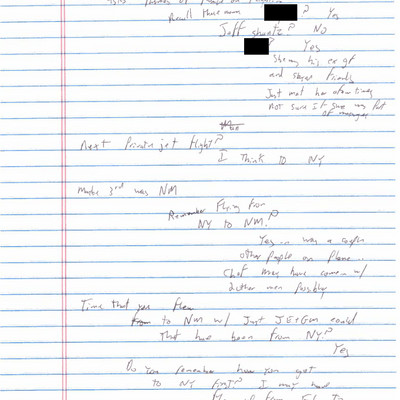 Recall those names ? Yes
Jeff shantz? No
? Yes
She my his ex gf
and stayed friends
Just met her a few times
Not sure if she was part
of massages
Next Private jet flight?
I Think to NY
Maybe 3rd was NM
Remember Flying from
NY to NM?
Yes... was a couple
other people on plane..
Chef may have come w/
2 other men possibly
Time that you flew
to NM w/ Just JE + GM could
that have been from NY?
Yes
Do you remember how you got
to NY first? I may have
from